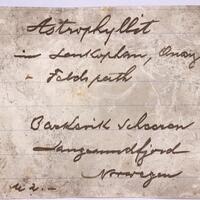 Astrophyllit
in Leukophan,
Feldspath
Barkevik Scheeren
Langesundfjord
Norwegen
M 2.-